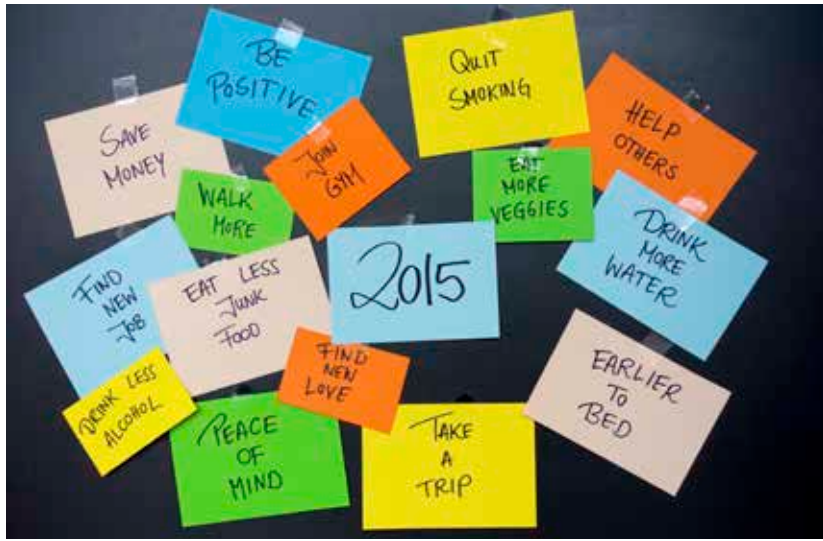 BE
POSITIVE
QUIT
SMOKING
SAVE
MONEY
JOIN
GYM
HELP
OTHERS
WALK
MORE
EAT
MORE
VEGGIES
DRINK
MORE
WATER
FIND
NEW
JOB
EAT LESS
JUNK
FOOD
2015
FIND
NEW
LOVE
EARLIER
TO
BED
DRINK LESS
ALCOHOL
PEACE
OF
MIND
TAKE
A
TRIP